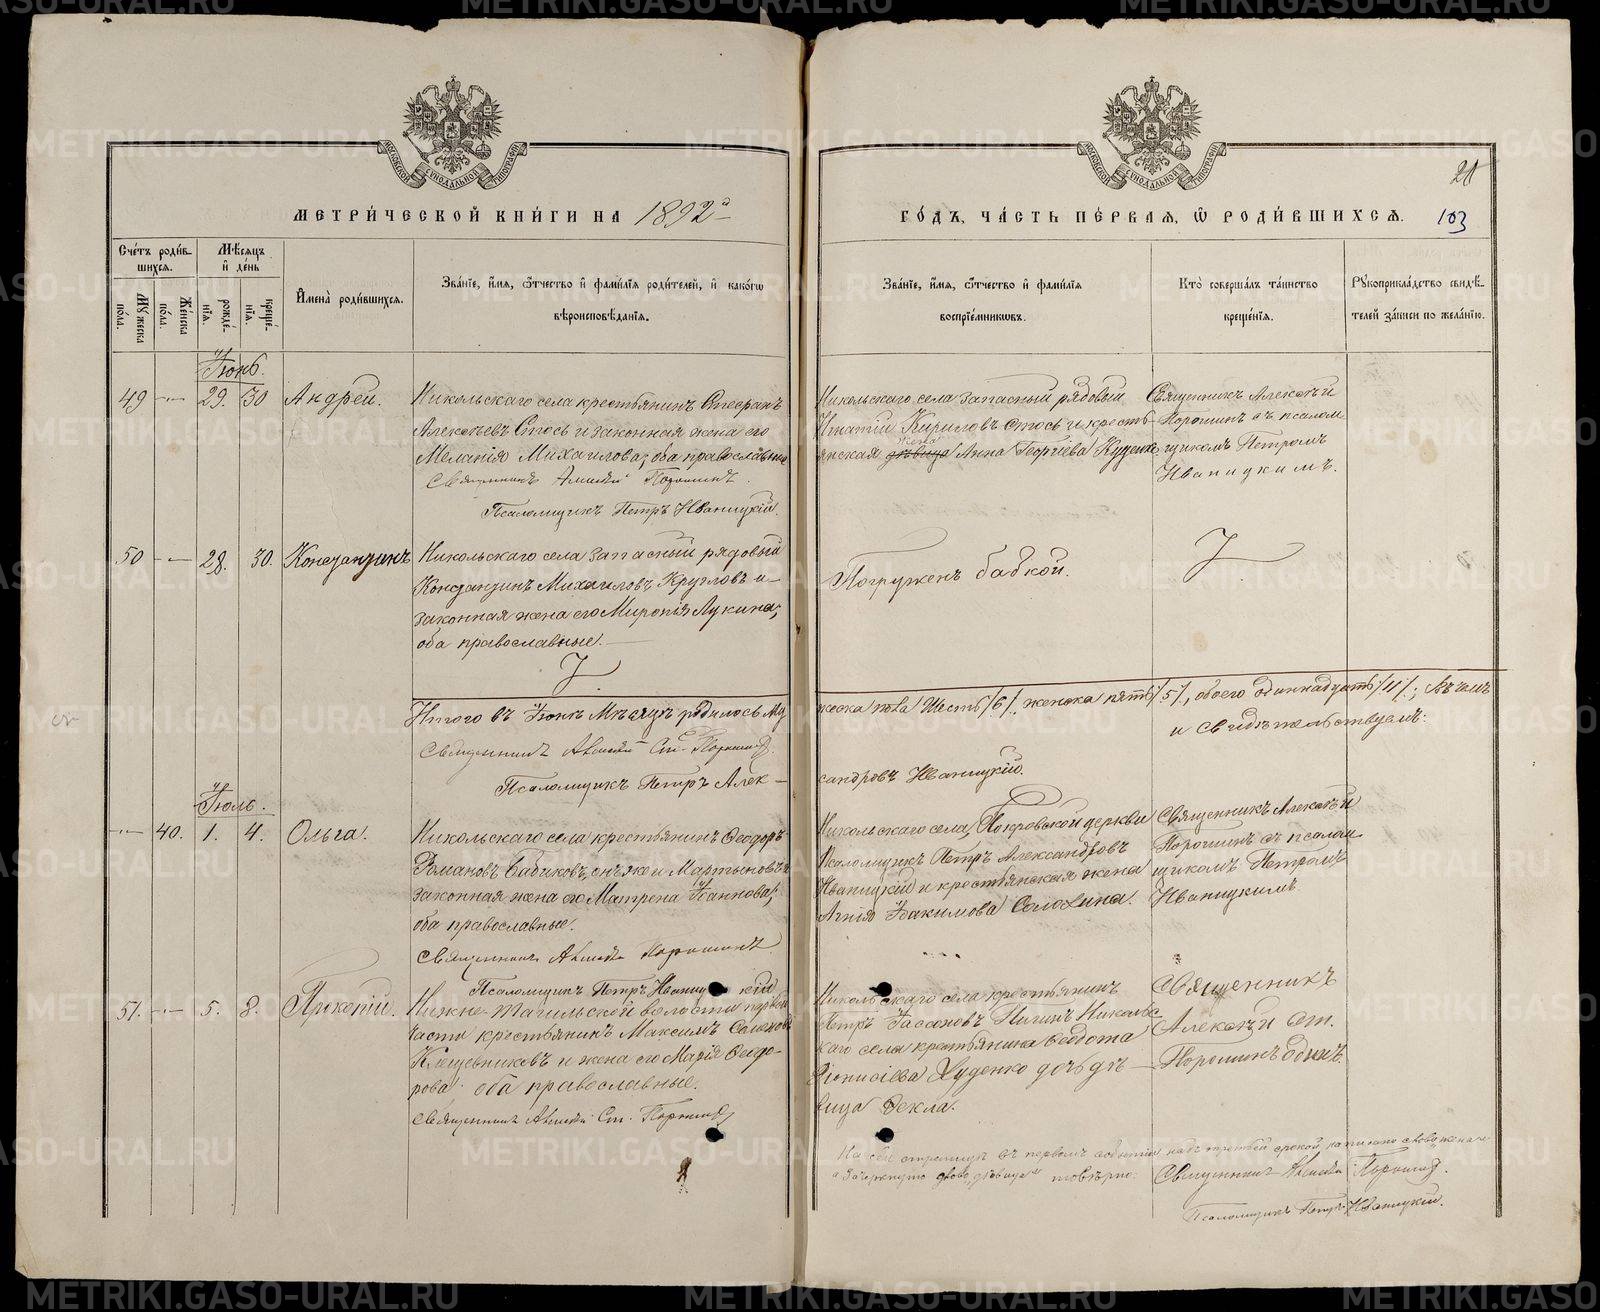 МОСКОВСКОЙ СУНОДАЛЬНОЙ ТИПОГРАФІИ
МОСКОВСКОЙ СУНОДАЛЬНОЙ ТИПОГРАФІИ
21
МЕТРИ́ЧЕСКОЙ КНИ́ГИ НА 1892й
ГО́ДЪ, ЧА́СТЬ ПЕ́РВАЯ, Ѡ РОДИ́ВШИХСЯ.
103
Сче́тъ роди́вшихся.
Му́жеска по́ла.
Же́нска по́ла.
Мѣ́сяцъ и де́нь
рожде́нїя.
креще́нїя.
И҆мена̀ роди́вшихся.
Зва́нїе, и҆́мя, ѻ҆́тчество и҆ фами́лїя роди́телей, и҆ како́гѡ вѣроисповѣ́данїя.
Зва́нїе, и҆́мя, ѻ҆́тчество и҆ фами́лїя воспрїе́мникѡвъ.
Кто̀ соверша́лъ та́инство креще́нїя.
Рꙋкоприкла́дство свидѣ́телей за́писи по жела́нїю.
Іюнь.
49 — 29. 30 Андрей.
Никольскаго села крестьянинъ
Алексѣевъ Стось и законная жена его
Меланія Михаилова; оба православные
Священникъ Алексѣй Порошинъ.
Псаломщикъ Петръ Иваницкій.
Никольскаго села запасный рядовый
Игнатій Кириловъ Стось и кресть-
янская жена дѣвица Анна Георгіева Куценко
Священникъ Алексѣй
Порошинъ съ псалом
щикомъ Петромъ
Иваницкимъ.
50 — 28. 30. Констандинъ
Никольскаго села запасный рядовый
Констандинъ Михаиловъ Кругловъ и
законная жена его Миропія Лукина;
оба православные.
Погруженъ бабкой.
Итого въ Іюнѣ Мѣсяцѣ родилось му
жеска пола Шесть /6/, женска пять /5/, обоего одиннадцать /11/; въ чемъ
и свидѣтельствуемъ:
Священникъ Алексѣй Ст. Порошинъ.
Псаломщикъ Петръ Алек-
сандровъ Иваницкій.
Іюль.
— 40. 1. 4. Ольга.
Никольскаго села крестьянинъ Ѳеодоръ
Романовъ Бабиковъ, онъ же и Мартыновъ и
законная жена его Матрена Іоаннова;
оба православные.
Священникъ Алексѣй Порошинъ
Псаломщикъ Петръ Иваницкій
Никольскаго села, Покровской церкви
Псаломщикъ Петръ Александровъ
Иваницкій и крестьянская жена
Агнія Іоакимова
Священникъ Алексѣй
Порошинъ съ псалом
щикомъ Петромъ
Иваницкимъ
51. — 5. 8. Прокопій.
Нижне-Тагильской волости первой
части крестьянинъ Максимъ
и жена его Марія Ѳеодо-
рова: оба православные.
Священникъ Алексѣй Ст. Порошинъ
Никольскаго села крестьянинъ
Петръ Никольс
каго села крестьянина Ѳеодота
Діонисіева Куценко дочь дѣ-
вица Ѳекла.
Священникъ
Алексѣй Ст.
Порошинъ одинъ.
На сей страницѣ въ первомъ событіи надъ третьей строкой, записано слово жена
Зачеркнуто слово „дѣвица"
Священникъ Алексѣй Порошинъ.
Псаломщикъ Петръ Иваницкій.
METRIKI.GASO-URAL.RU